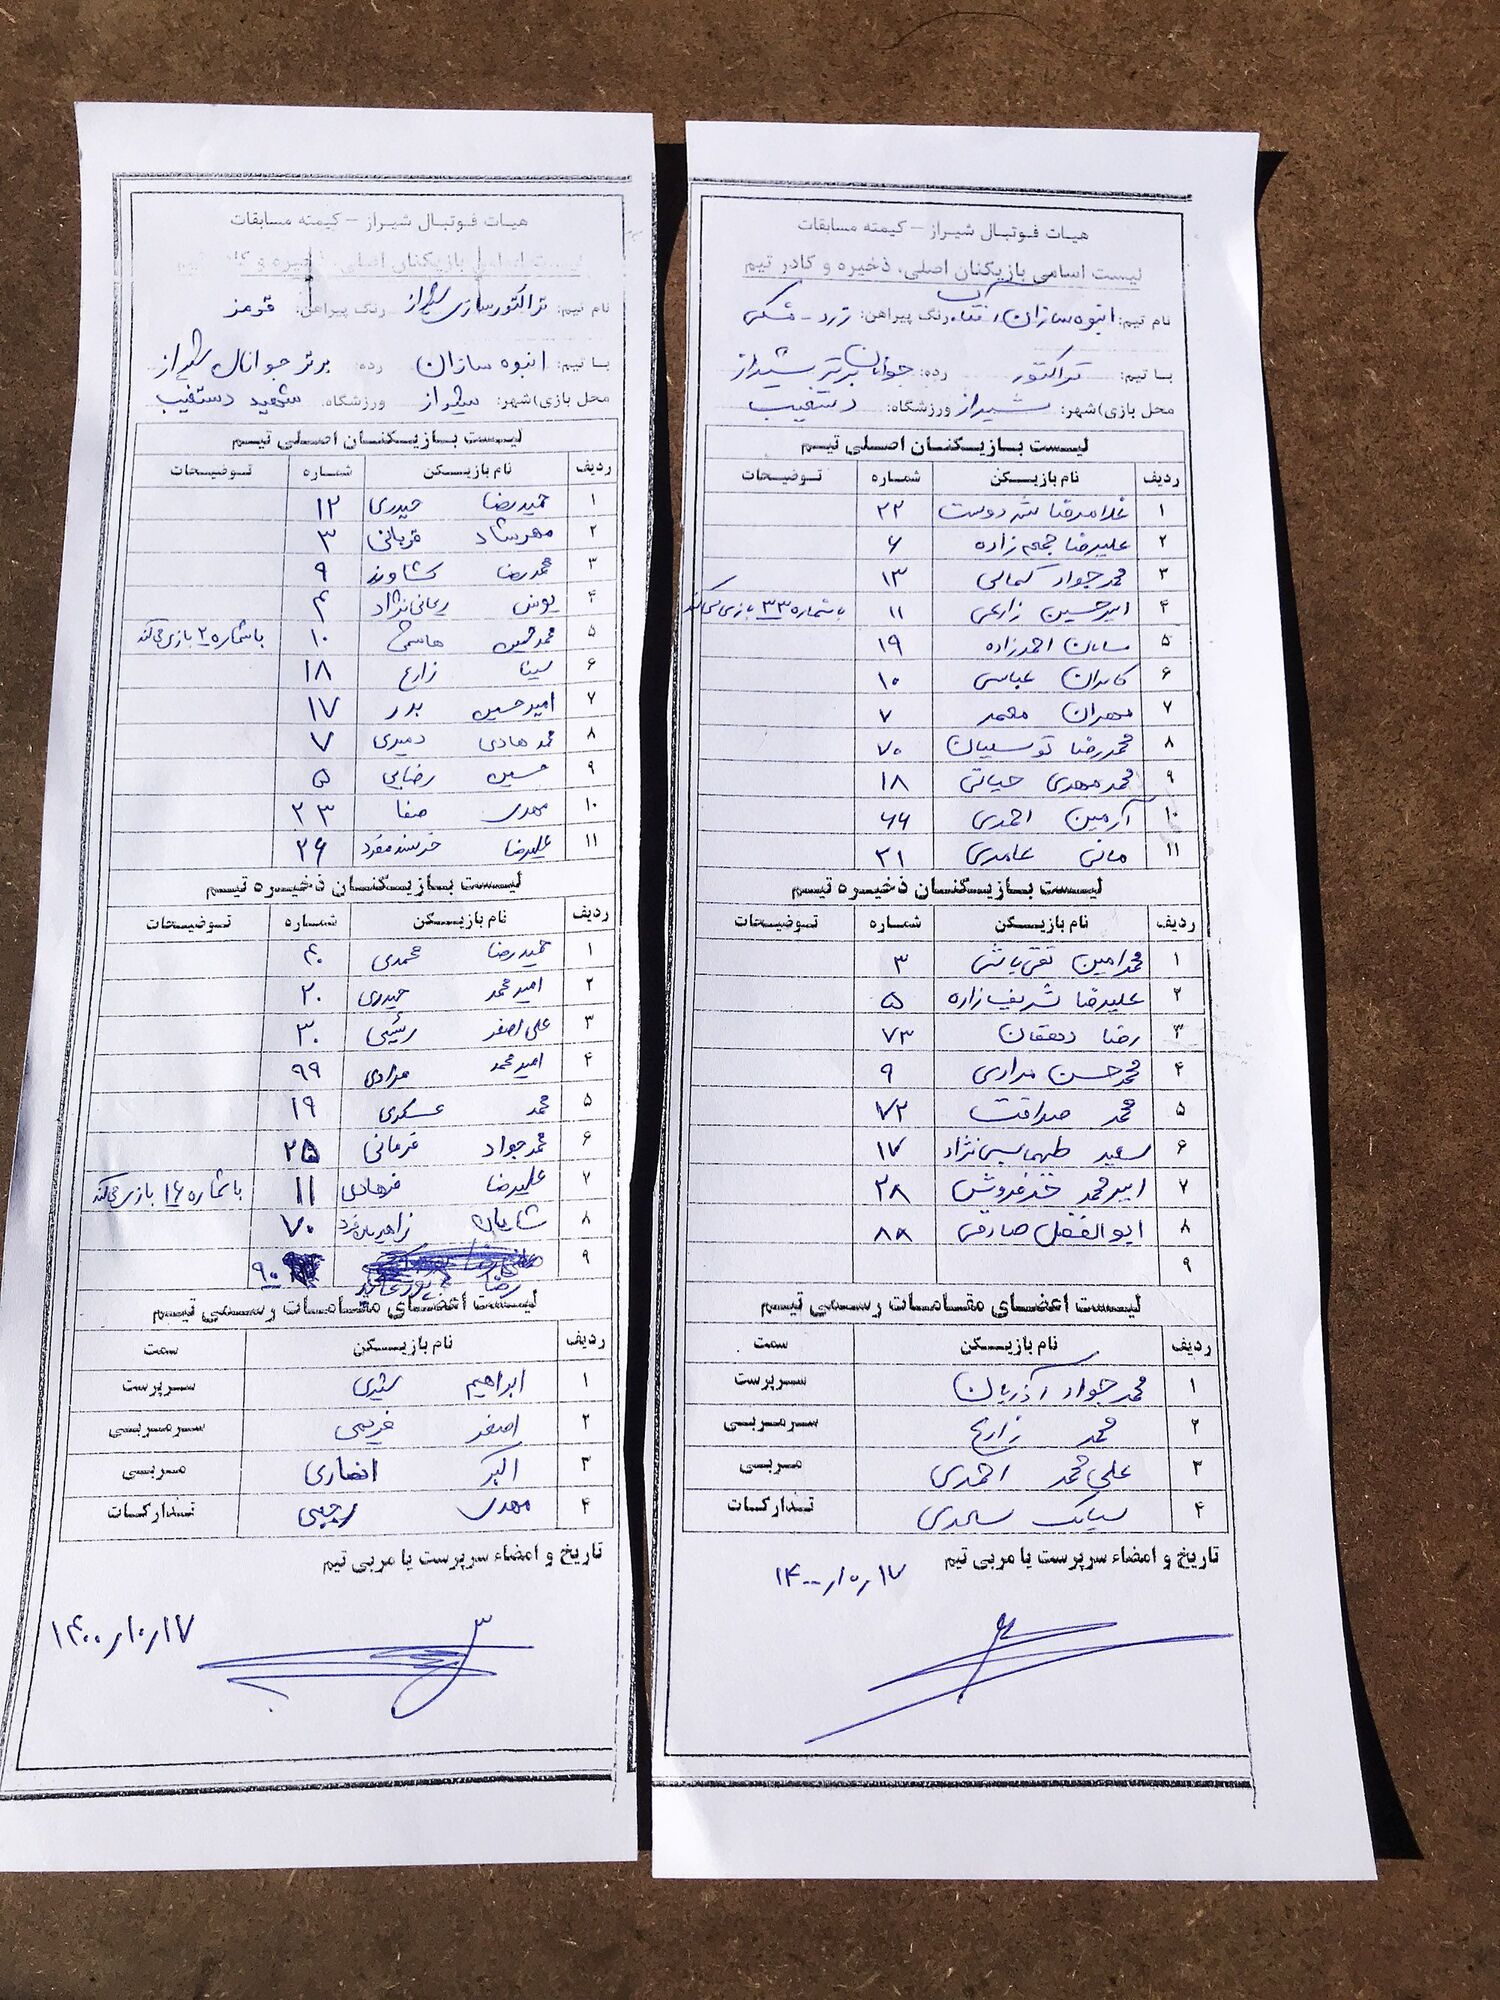 هیات فوتبال شیراز - کیمته مسابقات
لیست اسامی بازیکنان اصلی، ذخیره و کادر تیم
نام تیم: انبوه سازان رنگ پیراهن: زرد - مشکی
با تیم: تراکتور رده: جوانان برتر شیراز
محل بازی)شهر: شیراز ورزشگاه: دستغیب
لیست بازیکنان اصلی تیم
ردیف نام بازیکن شماره توضیحات
۱ غلامرضا دوست ۲۲
۲ علیرضا جمعه زاده ۶
۳ محمدجواد کمالی ۱۳
۴ امیرحسین زارعی ۱۱ با شماره ۳۳ بازی می‌کند
۵ سامان احمدزاده ۱۹
۶ کامران عباسی ۱۰
۷ مهران محمد ۷
۸ محمدرضا توسلیان ۷۰
۹ محمدمهدی حیاتی ۱۸
۱۰ آرمین احمدی ۶۶
۱۱ مانی عامری ۲۱
لیست بازیکنان ذخیره تیم
ردیف نام بازیکن شماره توضیحات
۱ محمدامین نقی باشی ۳
۲ علیرضا شریف زاده ۵
۳ رضا دهقان ۷۳
۴ محمدحسن مرادی ۹
۵ محمد صداقت ۷۲
۶ سعید طهماسبی نژاد ۱۷
۷ امیرمحمد ۲۸
۸ ابوالفضل صادقی ۸۸
۹
لیست اعضای مقامات رسمی تیم
ردیف نام بازیکن سمت
۱ محمدجواد آذریان سرپرست
۲ محمد زارع سرمربی
۳ علی محمد احمدی مربی
۴ سیامک تدارکات
تاریخ و امضاء سرپرست یا مربی تیم
۱۴۰۰/۱۰/۱۷
هیات فوتبال شیراز - کیمته مسابقات
لیست اسامی بازیکنان اصلی، ذخیره و کادر تیم
نام تیم: تراکتورسازی شیراز رنگ پیراهن: قرمز
با تیم: انبوه سازان رده: برتر جوانان شیراز
محل بازی)شهر: شیراز ورزشگاه: شهید دستغیب
لیست بازیکنان اصلی تیم
ردیف نام بازیکن شماره توضیحات
۱ حمیدرضا حیدری ۱۲
۲ مهرشاد قربانی ۳
۳ محمدرضا کشاورز ۹
۴ یونس ریحانی نژاد ۴
۵ محمدحسین هاشمی ۱۰ با شماره ۲ بازی می‌کند
۶ سینا زارع ۱۸
۷ امیرحسین بدر ۱۷
۸ محمدهادی دمیری ۷
۹ حسین رضایی ۵
۱۰ مهدی صفا ۲۳
۱۱ علیرضا خرسندمفرد ۲۶
لیست بازیکنان ذخیره تیم
ردیف نام بازیکن شماره توضیحات
۱ حمیدرضا محمدی ۴۰
۲ امیرمحمد حیدری ۲۰
۳ علی اصغر رئیسی ۳۰
۴ امیرمحمد مرادی ۹۹
۵ محمد عسکری ۱۹
۶ محمدجواد فرمانی ۲۵
۷ علیرضا فرهادی ۱۱ با شماره ۱۶ بازی می‌کند
۸ شایان ۷۰
۹ رضا ۹۰
لیست اعضای مقامات رسمی تیم
ردیف نام بازیکن سمت
۱ ابراهیم سرپرست
۲ اصغر کریمی سرمربی
۳ اکبر انصاری مربی
۴ مهدی رجبی تدارکات
تاریخ و امضاء سرپرست یا مربی تیم
۱۴۰۰/۱۰/۱۷